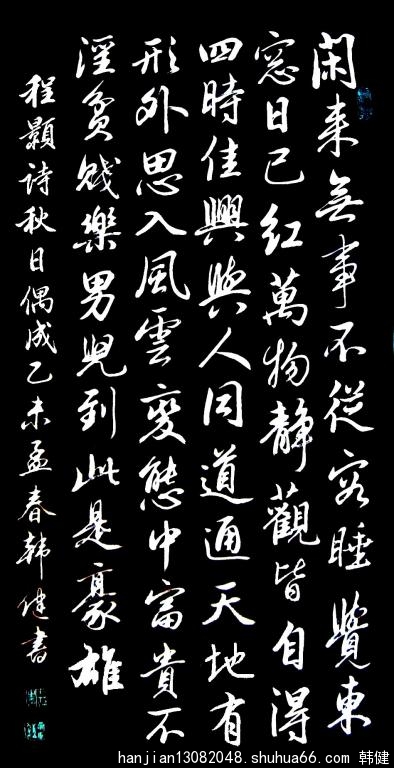 闲来無事不從容睡覺東
窓日已红萬物靜觀皆自得
四時佳興與人同道通天地有
形外思入風雲變態中富貴不
淫貧賤樂男兒到此是豪雄
程顥詩秋日偶成乙未孟春韩健書
hanjian13082048.shuhua66.com 韩健